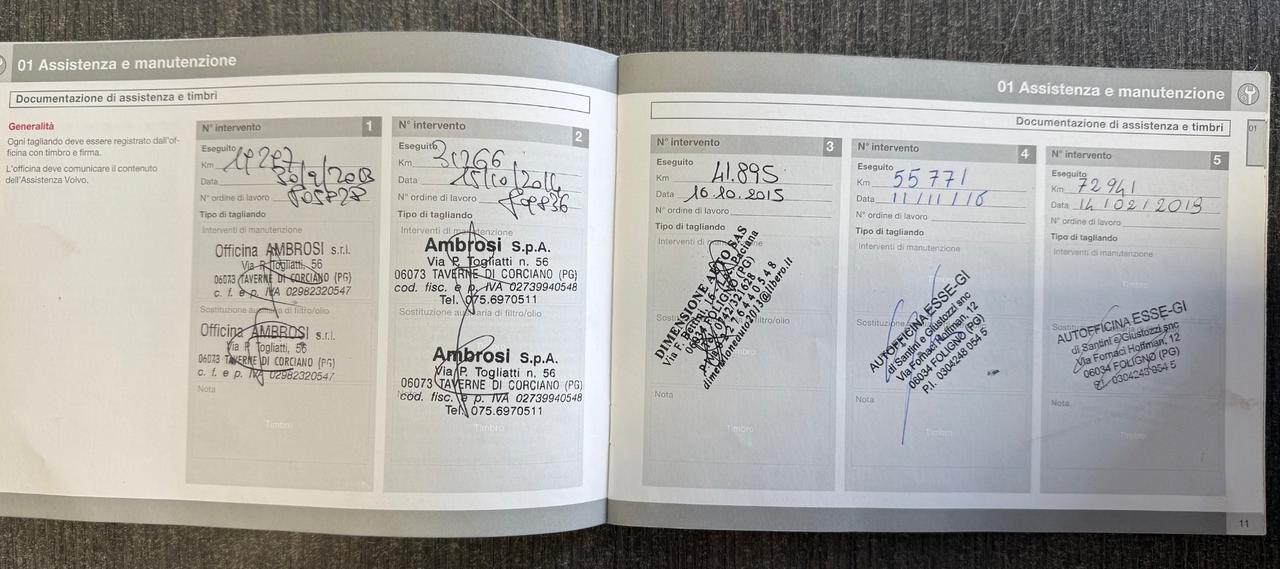 01 Assistenza e manutenzione
Documentazione di assistenza e timbri
Generalità
Ogni tagliando deve essere registrato dall'of-
ficina con timbro e firma.
L'officina deve comunicare il contenuto
dell'Assistenza Volvo.
N° intervento 1
Eseguito
Km
Data
N° ordine di lavoro
Tipo di tagliando
Interventi di manutenzione
Officina AMBROSI s.r.l.
Via P. Togliatti, 56
06073 TAVERNE DI CORCIANO (PG)
c. f. e p. IVA 02982320547
Sostituzione ausiliaria di filtro/olio
Officina AMBROSI s.r.l.
Via P. Togliatti, 56
06073 TAVERNE DI CORCIANO (PG)
c. f. e p. IVA 02982320547
Nota
Timbro
N° intervento 2
Eseguito
Km 31266
Data 15/10/2014
N° ordine di lavoro
Tipo di tagliando
Interventi di manutenzione
Ambrosi S.p.A.
Via P. Togliatti n. 56
06073 TAVERNE DI CORCIANO (PG)
cod. fisc. e p. IVA 02739940548
Tel. 075.6970511
Sostituzione ausiliaria di filtro/olio
Ambrosi S.p.A.
Via P. Togliatti n. 56
06073 TAVERNE DI CORCIANO (PG)
cod. fisc. e p. IVA 02739940548
Tel. 075.6970511
Timbro
01 Assistenza e manutenzione
01
Documentazione di assistenza e timbri
N° intervento 3
Eseguito
Km 41.895
Data 16.10.2015
N° ordine di lavoro
Tipo di tagliando
Interventi di manutenzione
DIMENSIONE AUTO SAS
FOLIGNO (PG)
dimensioneauto2013@libero.it
filtro/olio
Nota
Timbro
N° intervento 4
Eseguito
Km 55771
Data 11/11/16
N° ordine di lavoro
Tipo di tagliando
Interventi di manutenzione
Timbro
AUTOFFICINA ESSE-GI
di Santini e Giustozzi snc
Via Fornaci Hoffman, 12
06034 FOLIGNO (PG)
P.I. 0304248 054 5
filtro/olio
Nota
Timbro
N° intervento 5
Eseguito
Km 72941
Data 14/02/2019
N° ordine di lavoro
Tipo di tagliando
Interventi di manutenzione
Timbro
AUTOFFICINA ESSE-GI
di Santini e Giustozzi snc
Via Fornaci Hoffman, 12
06034 FOLIGNO (PG)
Nota
Timbro
11